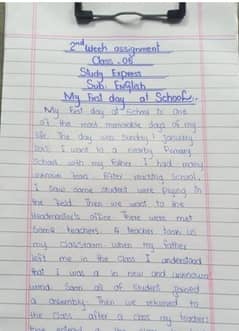 2nd week assignment
Class .05
Study Express
Sub: English
My First day at School..
My first day at School is one
of the most memorable days of my
life. The day was Sunday 1 January
I want to a nearby Primary
School with my father I had many
unknown fears. After reaching School,
I Saw Some student were Playing in
the field. Then we want to the
Headmaster's office. There were met
Some teachers. A teacher took us
my classroom when my father
left me in the class I understood
that I was a in new and unknown
world. Soon all of Student joined
a assembly. Then we returned to
the class after a class my teachers